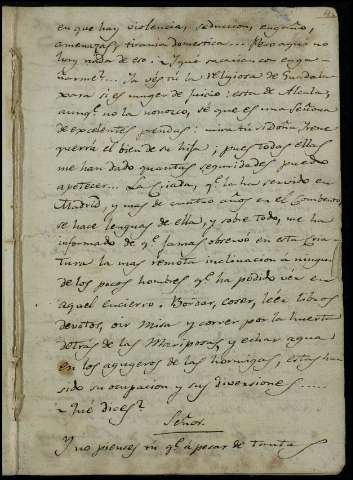 en que hay violencia, seduccion, engaño,
amenazas, tirania domestica... Pero aqui no
hay nada de eso. ¿Y qué sacarian con enga-
ñarme? Ya vés tú la Religiosa de Guadala-
xara si es muger de juicio: esta de Alcala,
aunq.e no la conozco, sé que es una Señora
de excelentes prendas: mira tú si doña Irene
querrá el bien de su hija; pues todas ellas
me han dado quantas seguridades puedo
apetecer... La criada, q.e la ha servido en
Madrid, y mas de cuatro años en el Convento,
se hace lenguas de ella, y sobre todo, me ha
informado de q.e jamas observó en esta cria-
tura la mas remota inclinacion à ninguno
de los pocos hombres q.e ha podido ver en
aquel encierro. Bordar, coser, leer libros
devotos, oir Misa y correr por la huerta
detras de las Mariposas, y echar agua
en los agugeros de las hormigas, estas han
sido su ocupacion y sus diversiones.....
¿Qué dices?
Señor.
Y no pienses tú q.e à pesar de tantas